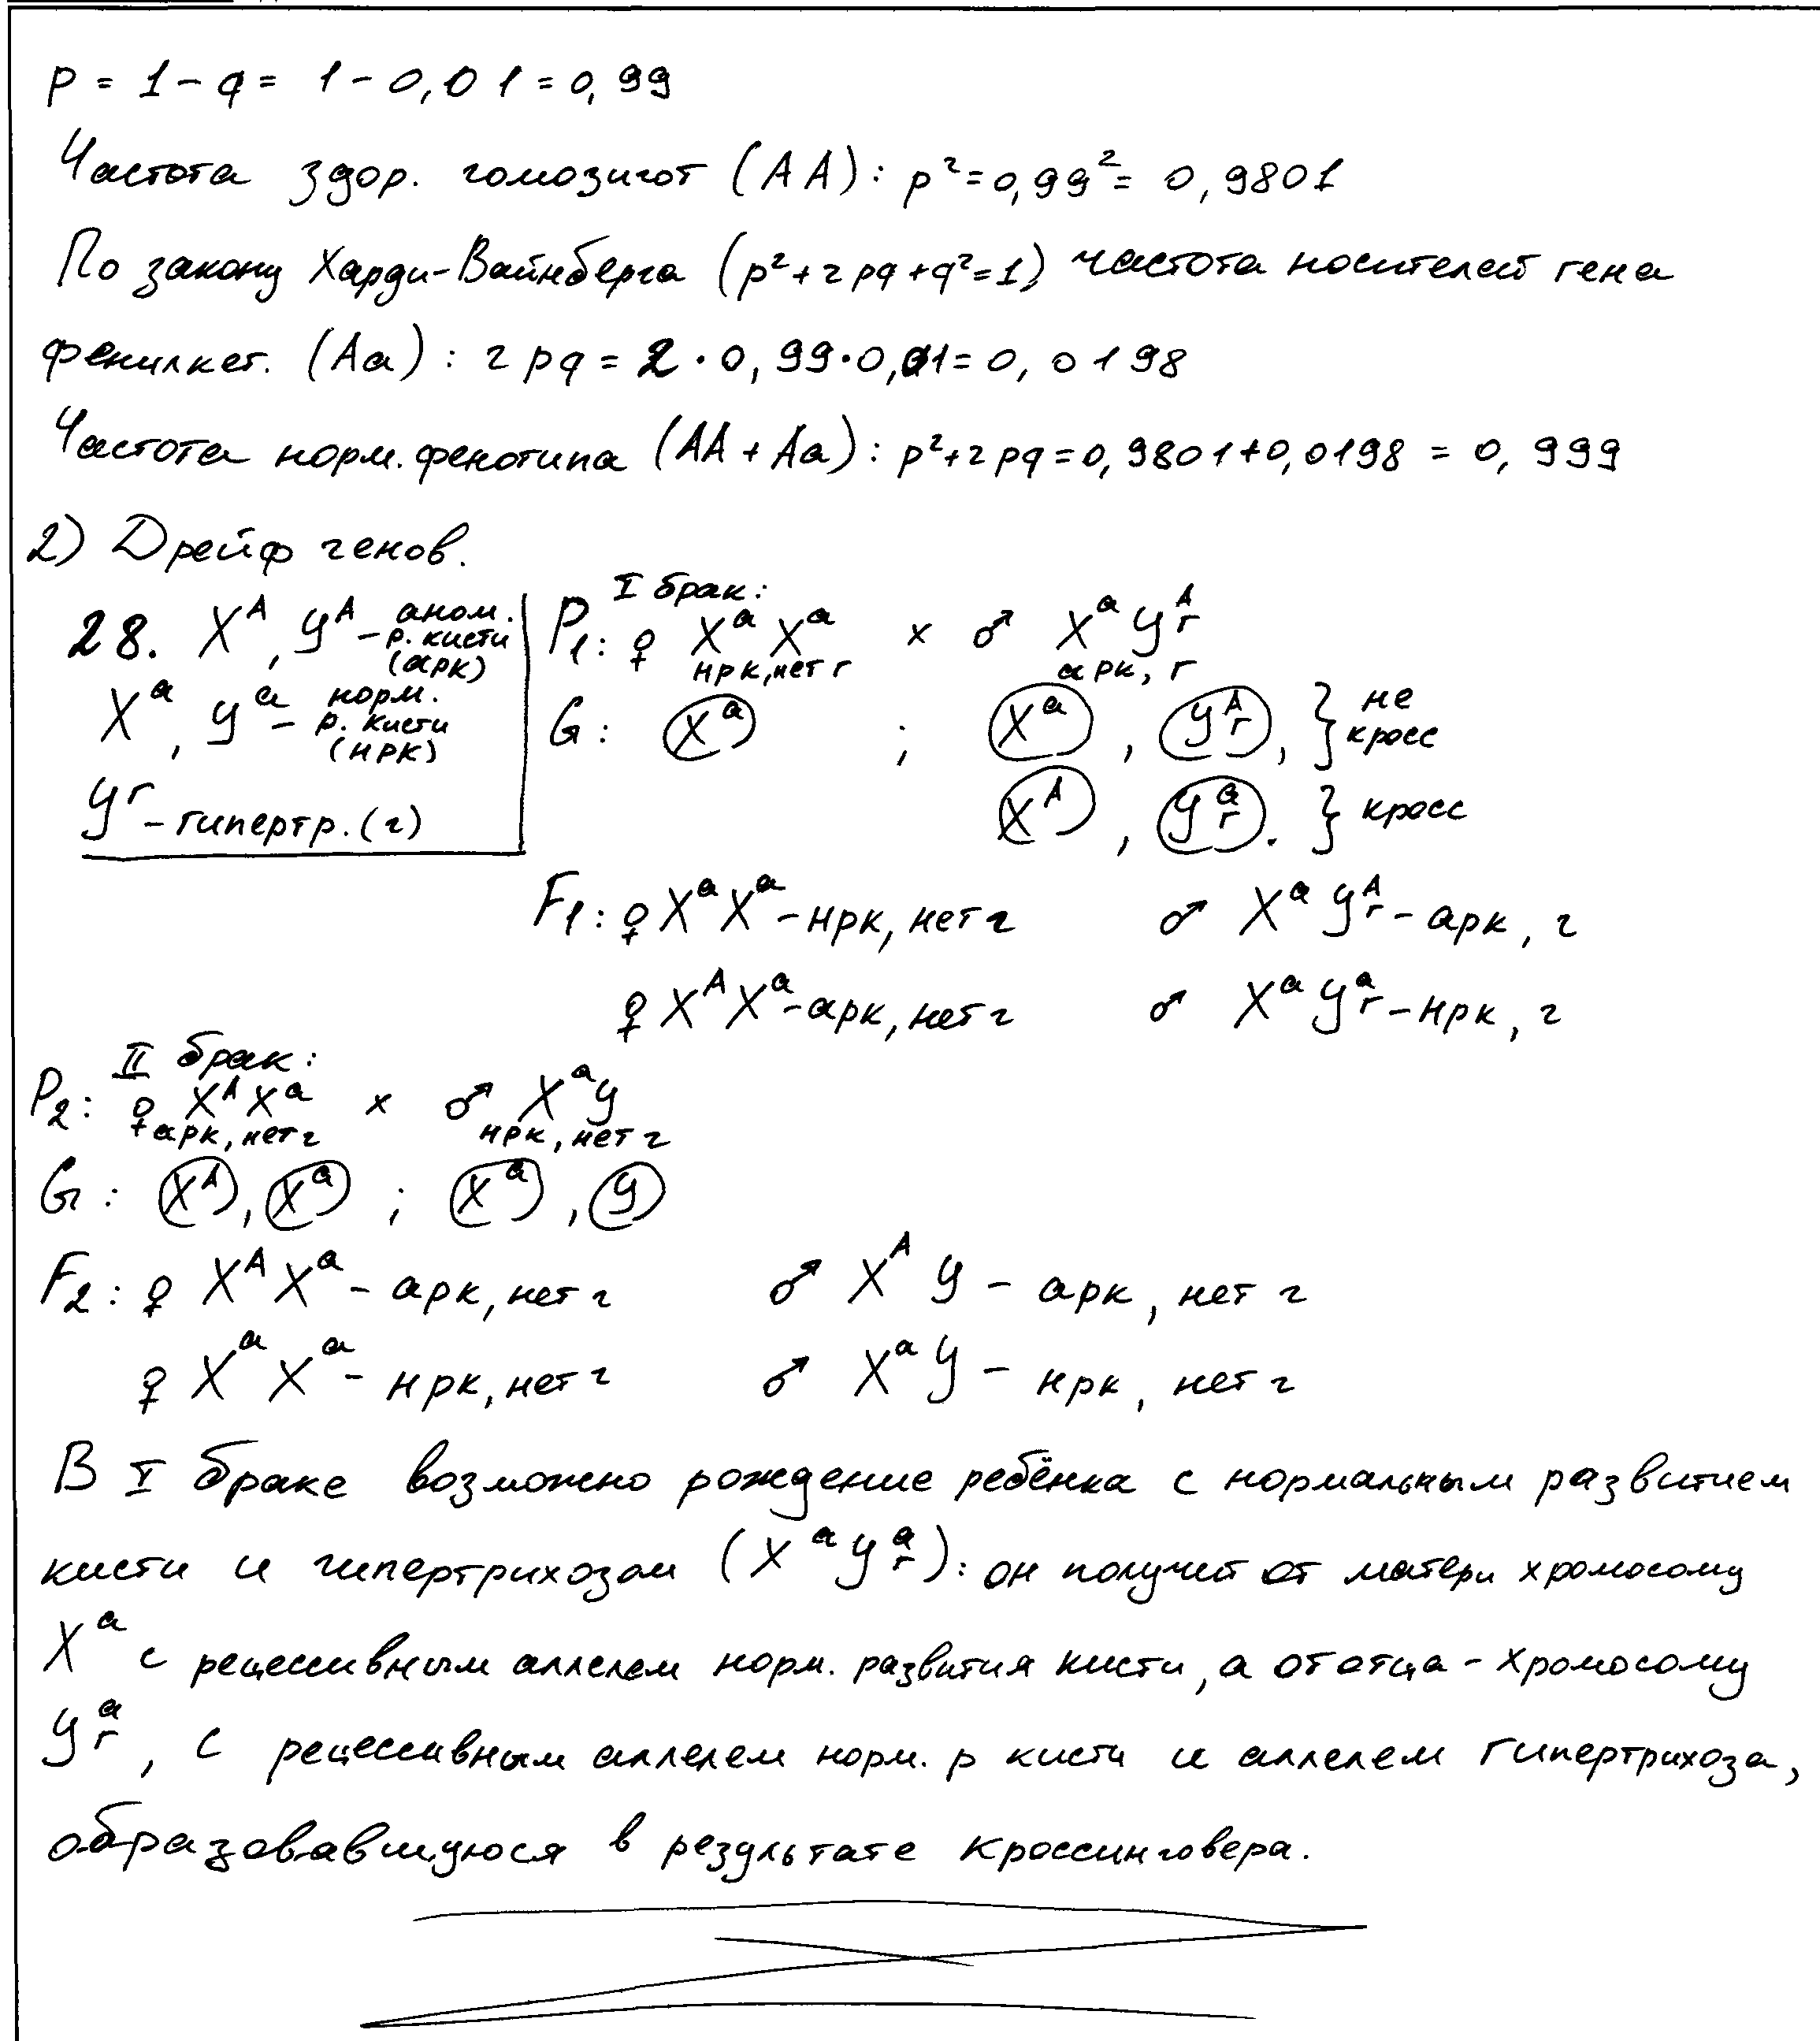 p = 1 - q = 1 - 0,01 = 0,99
Частота здор. гомозигот (AA): p² = 0,99² = 0,9801
По закону Харди-Вайнберга (p² + 2pq + q² = 1) частота носителей гена
фенилкет. (Aa): 2pq = 2 · 0,99 · 0,01 = 0,0198
Частота норм. фенотипа (AA + Aa): p² + 2pq = 0,9801 + 0,0198 = 0,999
2) Дрейф генов.
28. Xᴬ, Yᴬ - аном. р. кисти (арк)
Xᵃ, Yᵃ - норм. р. кисти (нрк)
Yᴦ - гипертр. (г)
I брак:
P₁: ♀ XᵃXᵃ × ♂ XᵃYᴬᴦ
нрк, нет г арк, г
G: Xᵃ ; Xᵃ, Yᴬᴦ, } не кросс
Xᴬ, Yᵃᴦ. } кросс
F₁: ♀ XᵃXᵃ - нрк, нет г ♂ XᵃYᴬᴦ - арк, г
♀ XᴬXᵃ - арк, нет г ♂ XᵃYᵃᴦ - нрк, г
II брак:
P₂: ♀ XᴬXᵃ × ♂ XᵃY
арк, нет г нрк, нет г
G: Xᴬ, Xᵃ ; Xᵃ, Y
F₂: ♀ XᴬXᵃ - арк, нет г ♂ XᴬY - арк, нет г
♀ XᵃXᵃ - нрк, нет г ♂ XᵃY - нрк, нет г
В I браке возможно рождение ребёнка с нормальным развитием
кисти и гипертрихозом (XᵃYᵃᴦ): он получит от матери хромосому
Xᵃ с рецессивным аллелем норм. развития кисти, а от отца - хромосому
Yᵃᴦ, с рецессивным аллелем норм. р кисти и аллелем гипертрихоза,
образовавшуюся в результате кроссинговера.